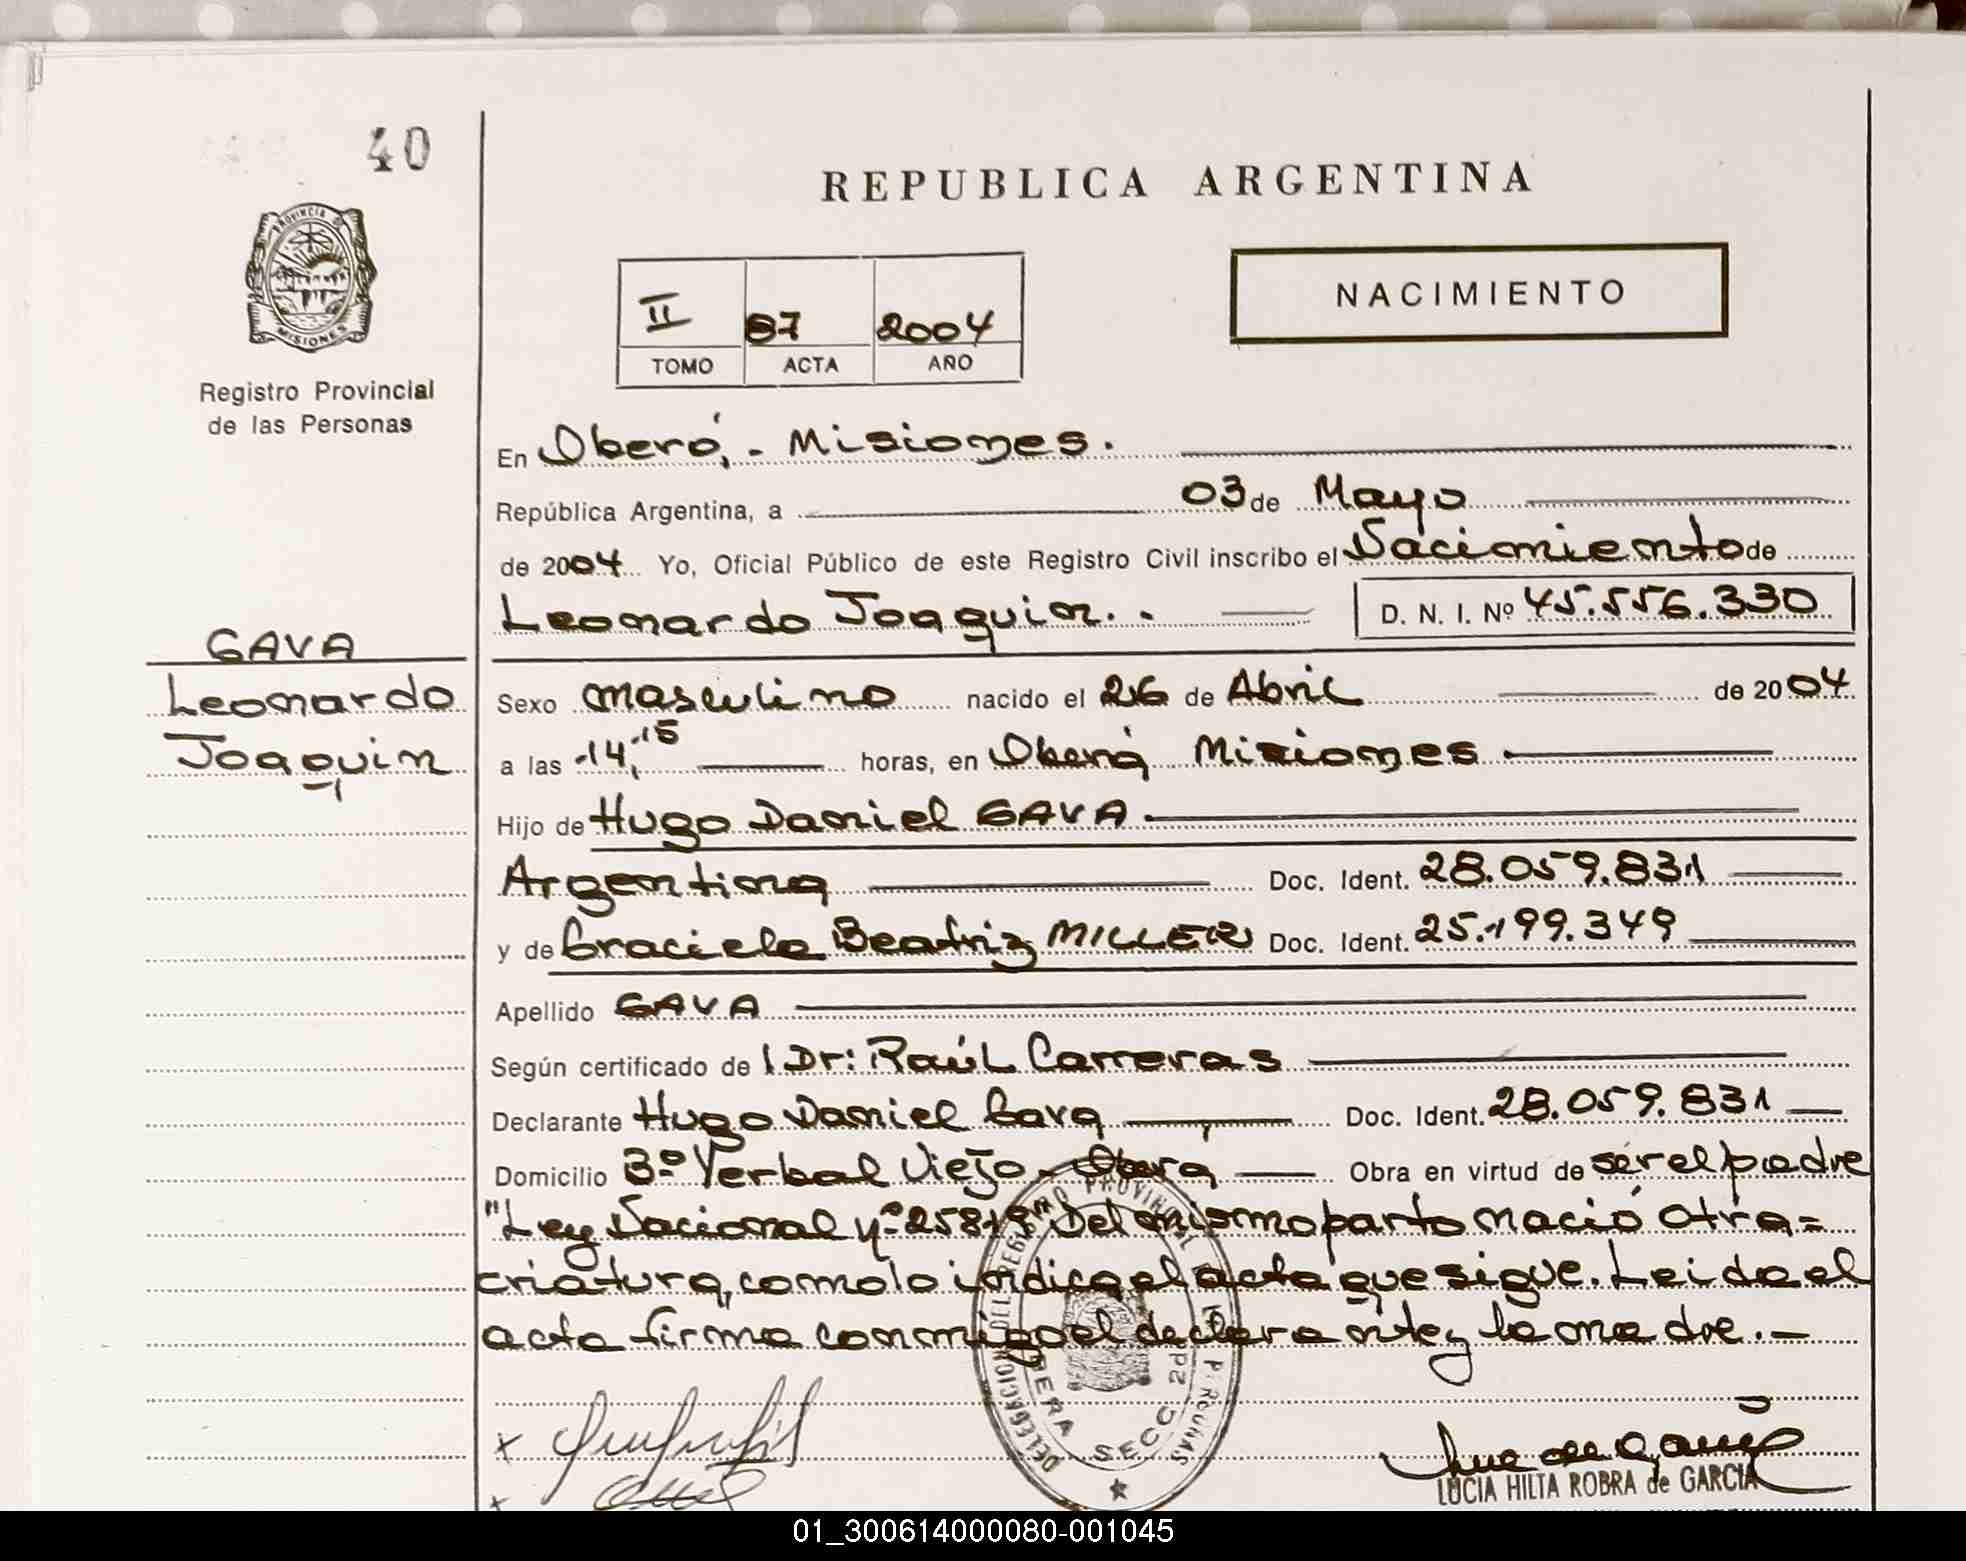 40
REPUBLICA ARGENTINA
PROVINCIA DE
MISIONES
Registro Provincial
de las Personas
II 87 2004
TOMO ACTA AÑO
NACIMIENTO
En Oberá, - Misiones.
República Argentina, a 03 de Mayo
de 2004 Yo, Oficial Público de este Registro Civil inscribo el Nacimiento de
Leonardo Joaquin. - D. N. I. Nº 45.556.330
GAVA
Leonardo
Joaquin
Sexo masculino nacido el 26 de Abril de 2004
a las 14,15 horas, en Oberá Misiones
Hijo de Hugo Daniel GAVA
Argentina Doc. Ident. 28.059.831
y de Graciela Beatriz MILLER Doc. Ident. 25.199.349
Apellido GAVA
Según certificado de l Dr: Raúl Carreras
Declarante Hugo Daniel Gava Doc. Ident. 28.059.831
Domicilio Bº Yerbal Viejo - Oberá Obra en virtud de ser el padre
"Ley Nacional nº 25819" Del mismo parto nació otra=
criatura, como lo indica el acta que sigue. Leida el
acta firma conmigo el declarante y la madre.-
SECC. 2da
LUCIA HILTA ROBRA de GARCIA
01_300614000080-001045